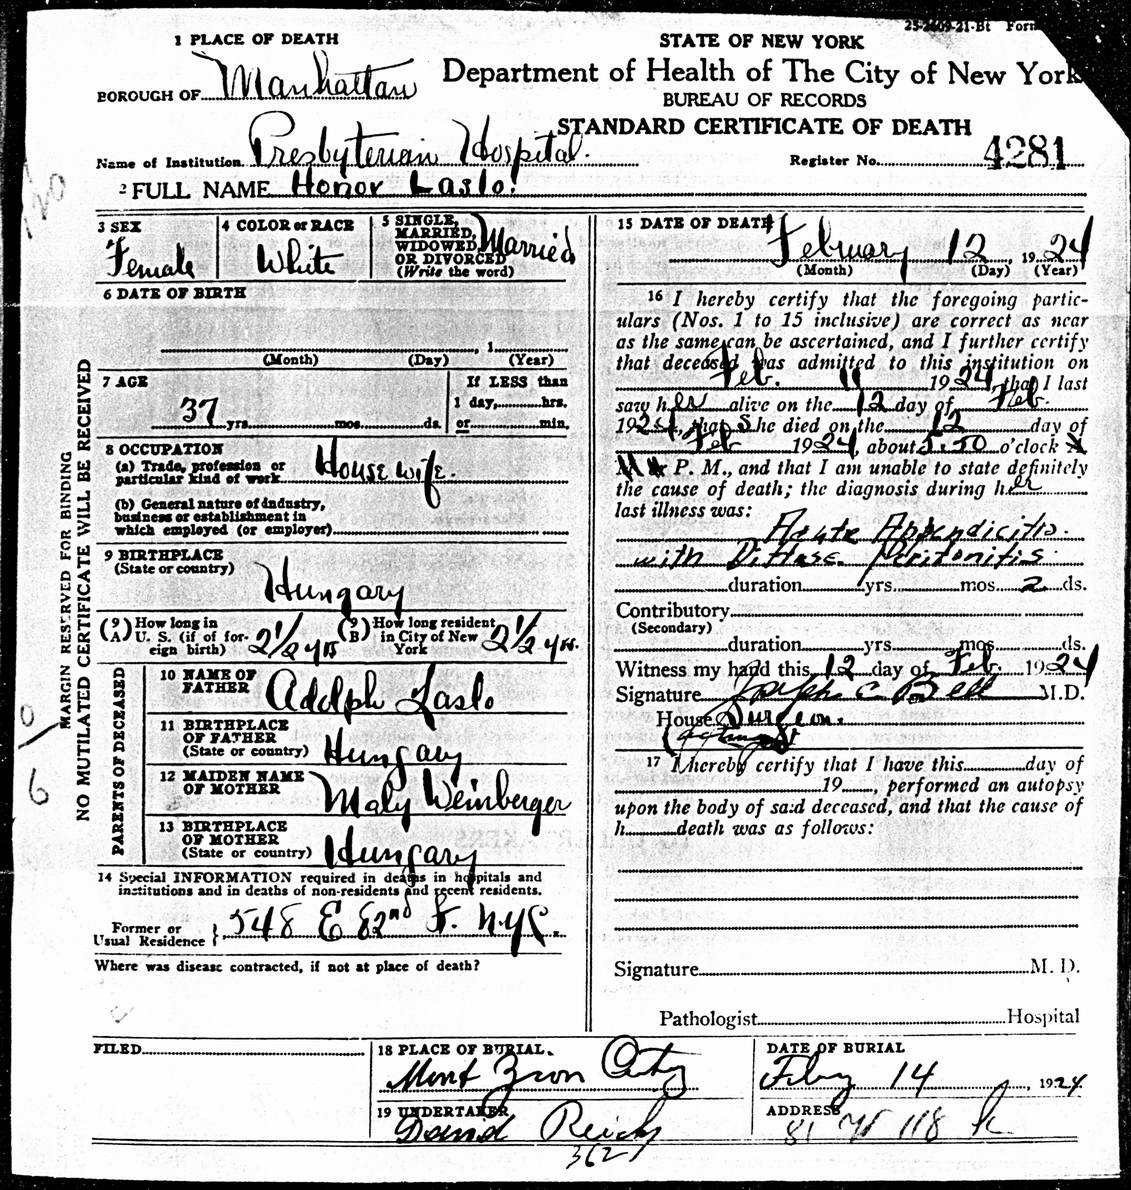 25-2609-21-Bt Form
1 PLACE OF DEATH
BOROUGH OF Manhattan
STATE OF NEW YORK
Department of Health of The City of New York
BUREAU OF RECORDS
STANDARD CERTIFICATE OF DEATH
Name of Institution Presbyterian Hospital.
Register No. 4281
2 FULL NAME Honor Laslo.
3 SEX
Female
4 COLOR or RACE
White
5 SINGLE,
MARRIED,
WIDOWED,
OR DIVORCED
(Write the word)
Married
6 DATE OF BIRTH
, 1
(Month) (Day) (Year)
7 AGE
37 yrs. mos. ds.
If LESS than
1 day, hrs.
or min.
8 OCCUPATION
(a) Trade, profession or
particular kind of work House wife.
(b) General nature of industry,
business or establishment in
which employed (or employer)
9 BIRTHPLACE
(State or country)
Hungary
(9 A) How long in
U. S. (if of for-
eign birth) 2 1/2 yrs
(9 B) How long resident
in City of New
York 2 1/2 yrs.
PARENTS OF DECEASED
10 NAME OF
FATHER Adolph Laslo
11 BIRTHPLACE
OF FATHER
(State or country) Hungary
12 MAIDEN NAME
OF MOTHER Maly Weinberger
13 BIRTHPLACE
OF MOTHER
(State or country) Hungary
14 Special INFORMATION required in deaths in hospitals and
institutions and in deaths of non-residents and recent residents.
Former or
Usual Residence } 548 E 82nd St. N.Y.C.
Where was disease contracted, if not at place of death?
15 DATE OF DEATH
February 12, 1924
(Month) (Day) (Year)
16 I hereby certify that the foregoing partic-
ulars (Nos. 1 to 15 inclusive) are correct as near
as the same can be ascertained, and I further certify
that deceased was admitted to this institution on
Feb. 11 1924, that I last
saw her alive on the 12 day of Feb.
1924, that She died on the 12 day of
Feb 1924, about 5.50 o'clock
P. M., and that I am unable to state definitely
the cause of death; the diagnosis during her
last illness was:
Acute Appendicitis.
with Diffuse Peritonitis.
duration yrs. mos. 2 ds.
Contributory
(Secondary)
duration yrs. mos. ds.
Witness my hand this 12 day of Feb. 1924
Signature Joseph C Bell M.D.
House Surgeon.
17 I hereby certify that I have this day of
19 , performed an autopsy
upon the body of said deceased, and that the cause of
h death was as follows:
Signature M. D.
Pathologist Hospital
FILED
18 PLACE OF BURIAL.
Mont Zion Cty
DATE OF BURIAL
Feby 14, 1924
19 UNDERTAKER
David Reich
3627
ADDRESS
81 W 118
MARGIN RESERVED FOR BINDING
NO MUTILATED CERTIFICATE WILL BE RECEIVED